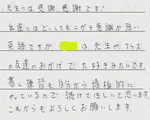 先生には感謝感謝です!
友達にはどしてもニガテ意識が強い
英語ですが、 は先生や、クラス
の友達のおかげで、大好きみたいです。
書く練習も自分から積極的に
やっているので続けてほしいと思います。
これからもよろしくお願いします